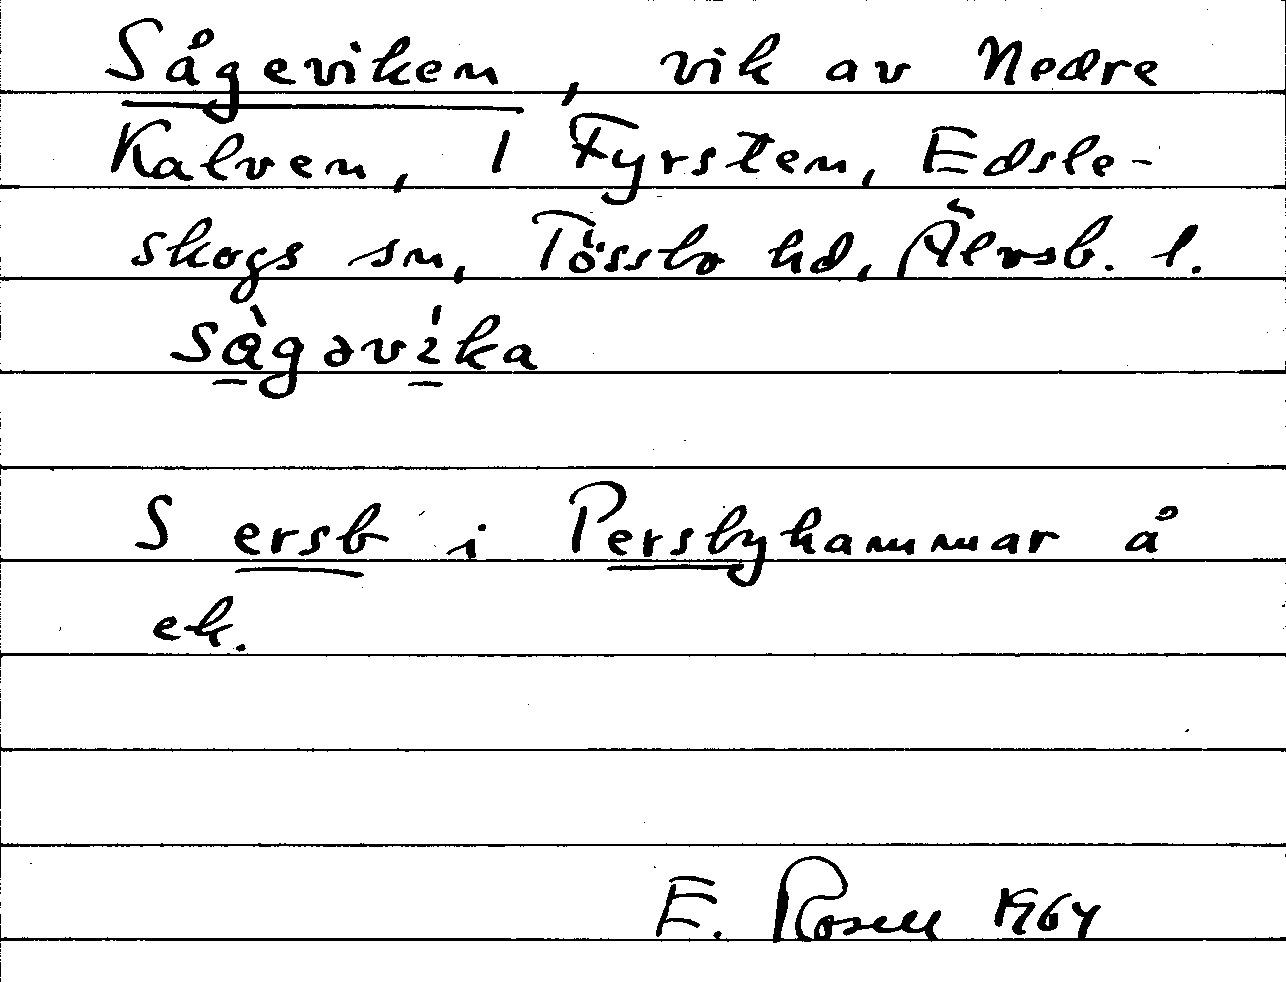 Sågeviken, vik av Nedre
Kalven, 1 Fyrsten, Edsle-
skogs sn, Tössbo hd, Älvsb. l.
sàgəvíka
S ersb i Persbyhammar å
ek.
E. Rosell 1964